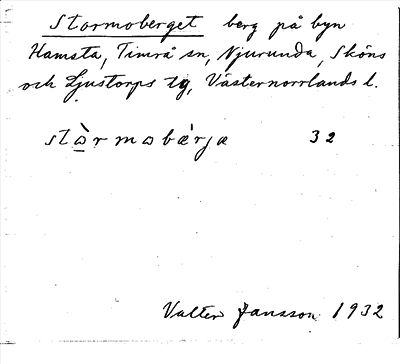 Stormoberget berg på byn
Hamsta, Timrå sn, Njurunda, Sköns
och Ljustorps tg, Västernorrlands l.
stɷ̀rmɷbæ̀rjæ 32
Valter Jansson 1932